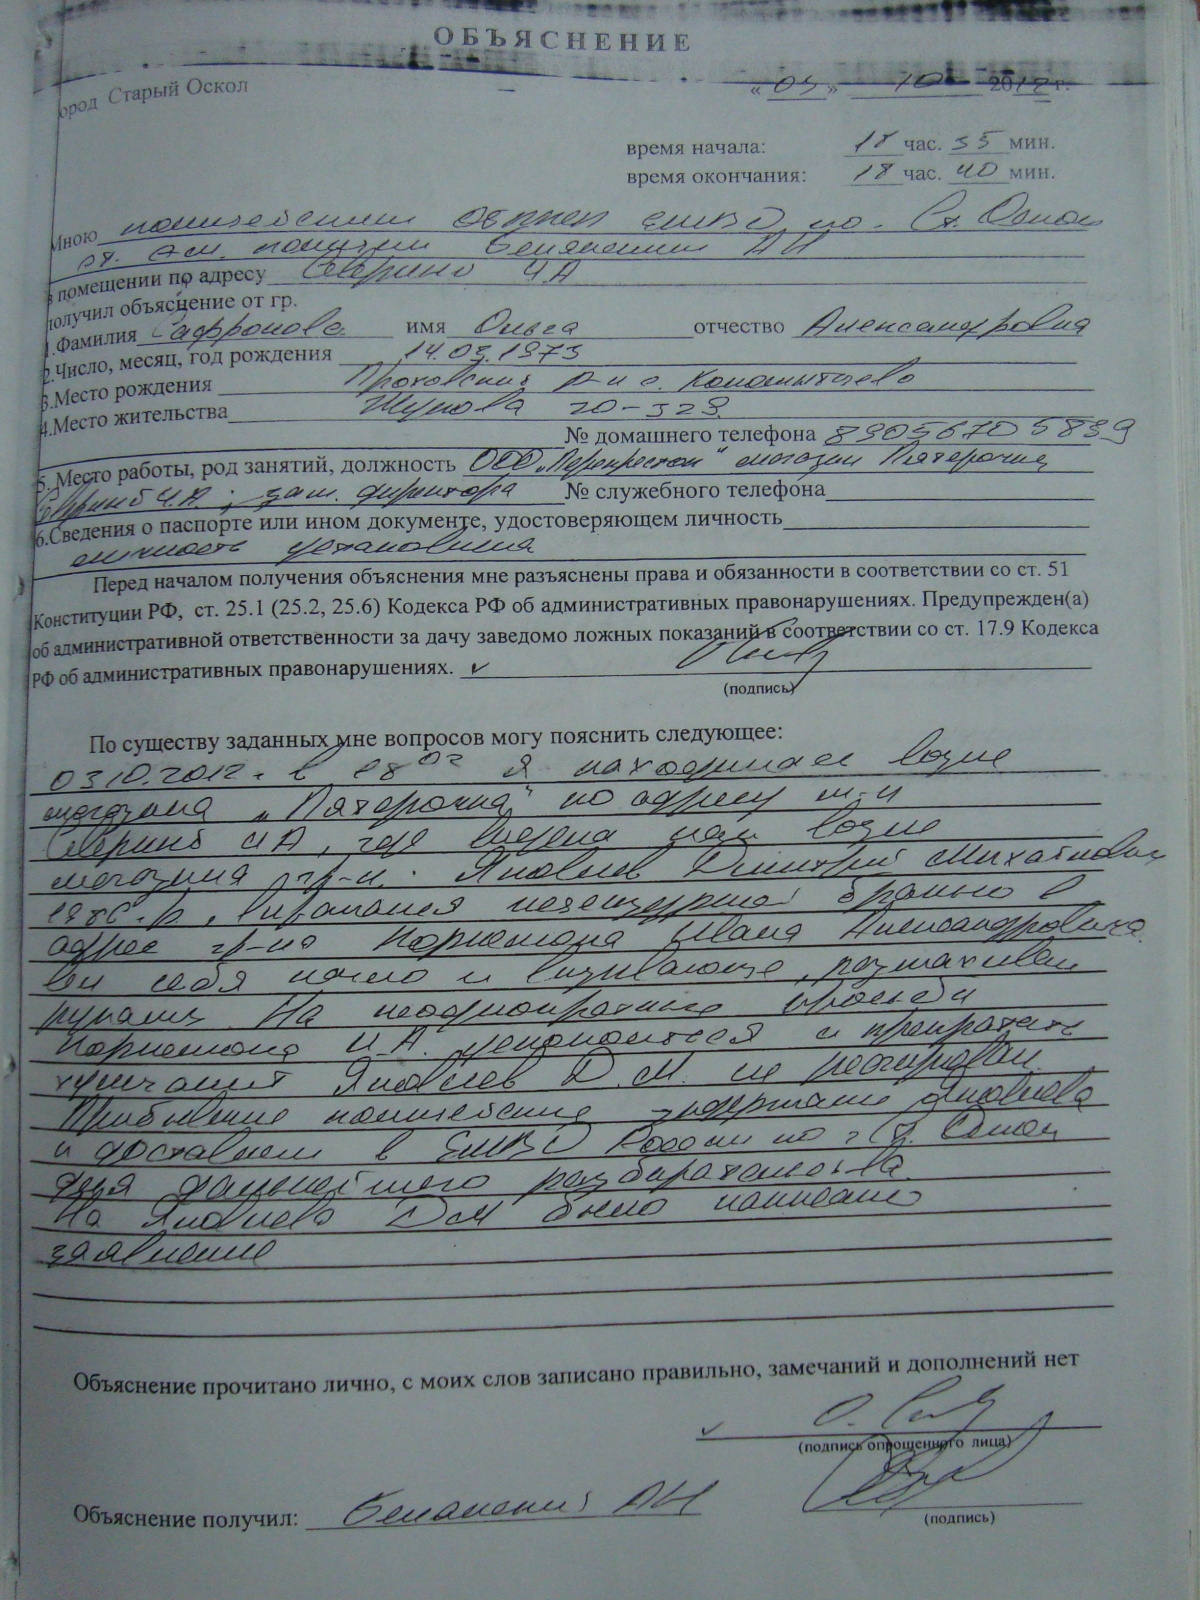 ОБЪЯСНЕНИЕ
ород Старый Оскол
« 03 » 10 2012 г.
время начала: 18 час. 35 мин.
время окончания: 18 час. 40 мин.
Мною полицейским ОВППСП ЕМВД по г. Ст. Оскол
ст. с-м. полиции АН
в помещении по адресу Северный 4А
получил объяснение от гр.
1.Фамилия Сафронова имя Ольга отчество Александровна
2.Число, месяц, год рождения 14.03.1973
3.Место рождения р-н с.
4.Место жительства Жукова 20-329.
№ домашнего телефона 89056705839
5. Место работы, род занятий, должность ООО „Перекресток" магазин Пятерочка
Северный 4А ; зам. директора № служебного телефона
6.Сведения о паспорте или ином документе, удостоверяющем личность
личность установлена
Перед началом получения объяснения мне разъяснены права и обязанности в соответствии со ст. 51
Конституции РФ, ст. 25.1 (25.2, 25.6) Кодекса РФ об административных правонарушениях. Предупрежден(а)
об административной ответственности за дачу заведомо ложных показаний в соответствии со ст. 17.9 Кодекса
РФ об административных правонарушениях.
(подпись)
По существу заданных мне вопросов могу пояснить следующее:
03.10.2012г. в 18 02 я находилась возле
магазина „Пятерочка" по адресу м-н
Северный 4А, где видела как возле
магазина гр-н. Яковлев Дмитрий Михайлович
1986г.р., выражался нецензурной бранью в
адрес гр-на Ивана Александровича
вел себя нагло и вызывающе, размахивал
руками. На неоднократные просьбы
И.А. успокоиться и прекратить
хулиганить Яковлев Д.М. не реагировал.
Прибывшие полицейские задержали Яковлева
и доставили в ЕМВД России по г. Ст. Оскол
для дальнейшего разбирательства.
На Яковлева ДМ было написано
заявление
Объяснение прочитано лично, с моих слов записано правильно, замечаний и дополнений нет
(подпись опрошенного лица)
Объяснение получил: АН
(подпись)